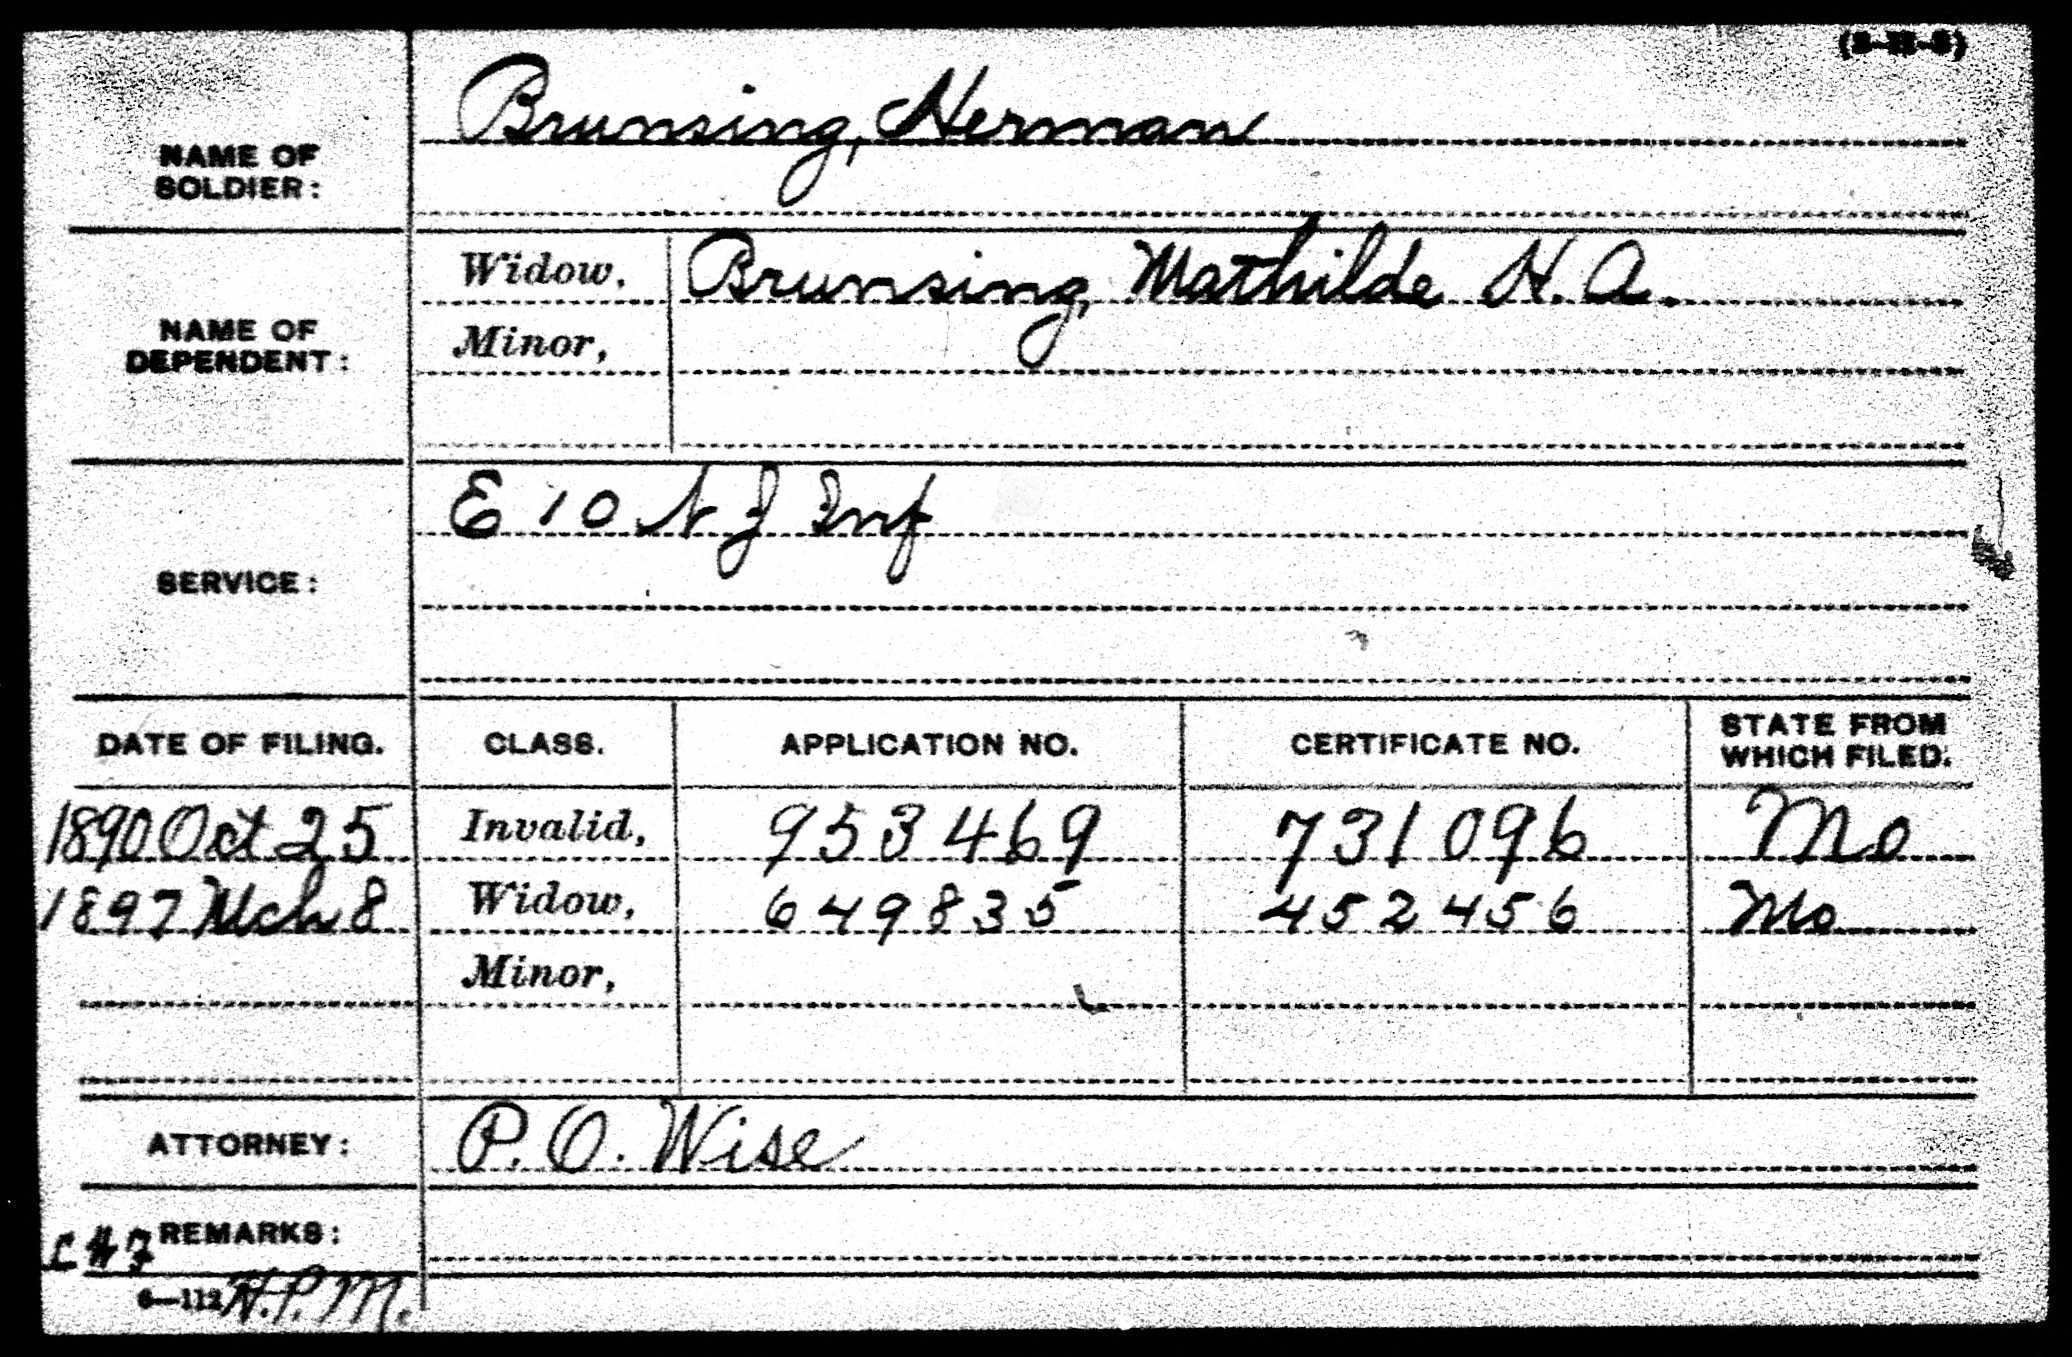 Brunsing, Herman
NAME OF
SOLDIER:
Widow, Brunsing, Mathilde H. A.
NAME OF
DEPENDENT:
Minor,
E 10 N J Inf
SERVICE:
DATE OF FILING. CLASS. APPLICATION NO. CERTIFICATE NO. STATE FROM WHICH FILED.
1890 Oct 25 Invalid, 953469 731096 Mo
1897 Mch 8 Widow, 649835 452456 Mo
Minor,
ATTORNEY: P. O. Wise
REMARKS:
6—112 H.P.M.